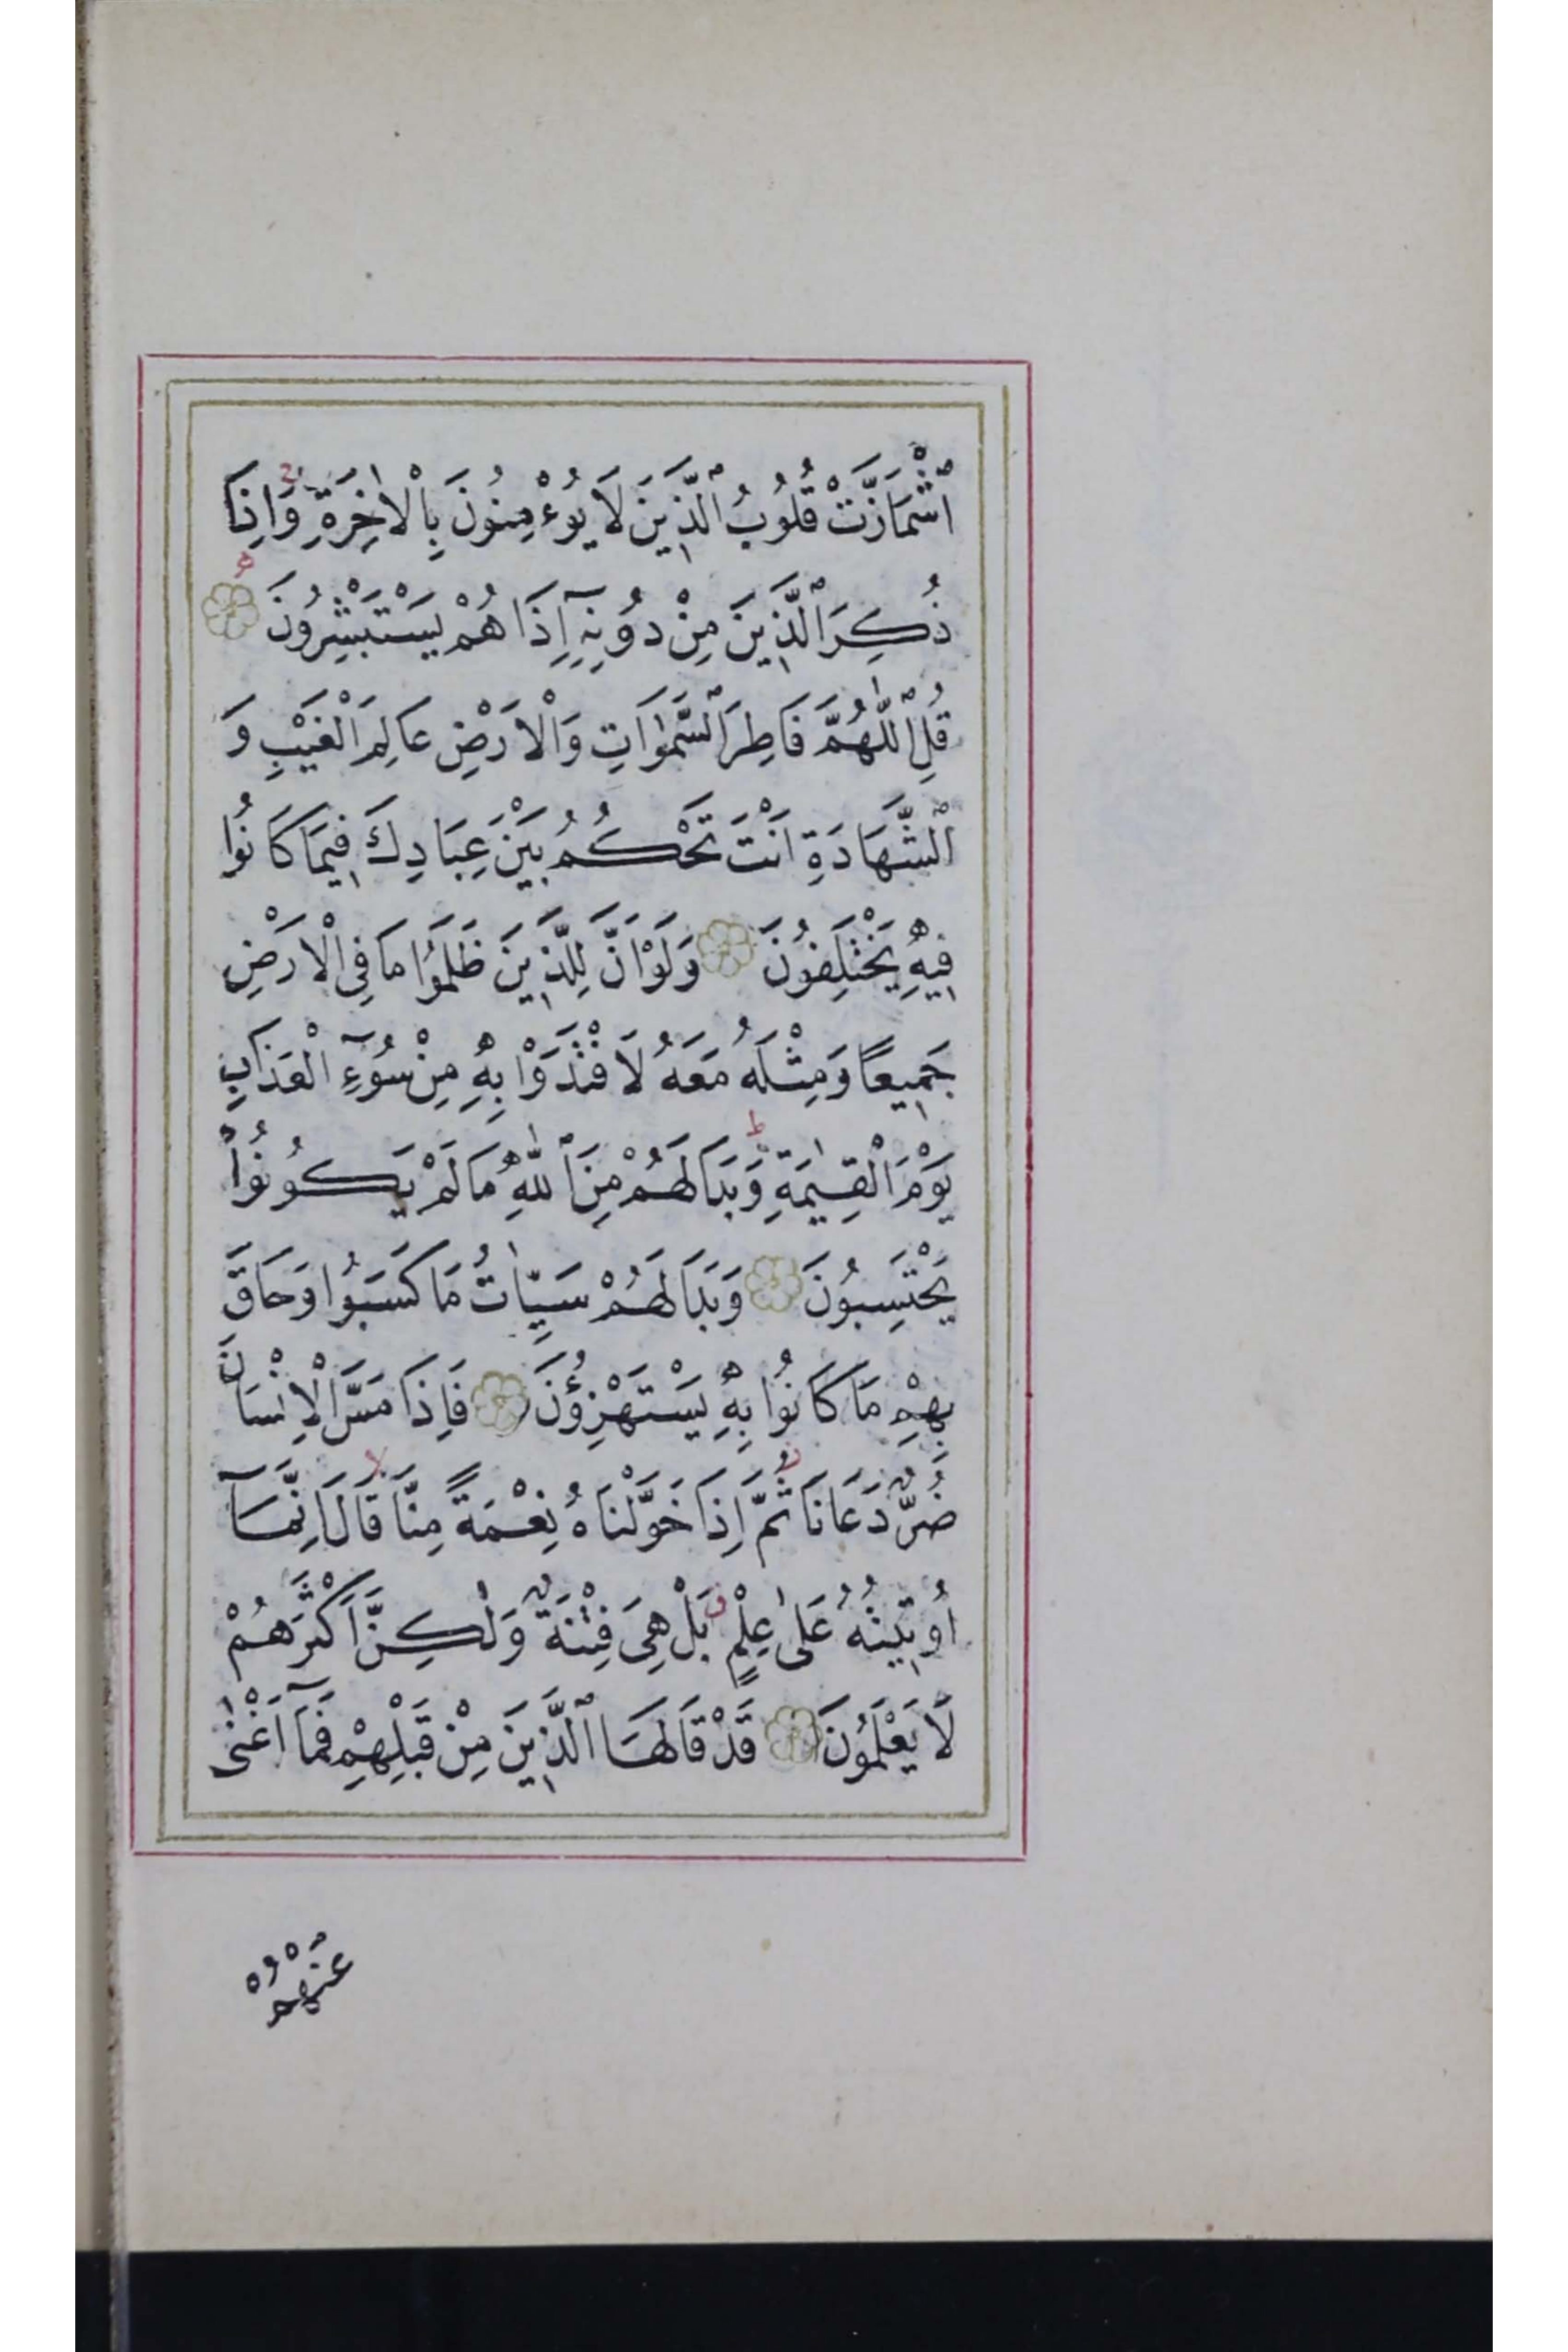 اشْمَاَزَّتْ قُلُوبُ الَّذِينَ لَا يُوءْمِنُونَ بِالْاٰخِرَةِ وَاِذَا
ذُكِرَ الَّذِينَ مِنْ دُونِهِٓ اِذَا هُمْ يَسْتَبْشِرُونَ
قُلِ اللّٰهُمَّ فَاطِرَ السَّمٰوَاتِ وَالْاَرْضِ عَالِمَ الْغَيْبِ وَ
الشَّهَادَةِ اَنْتَ تَحْكُمُ بَيْنَ عِبَادِكَ فِيمَا كَانُوا
فِيهِ يَخْتَلِفُونَ وَلَوْ اَنَّ لِلَّذِينَ ظَلَمُوا مَا فِى الْاَرْضِ
جَمِيعًا وَمِثْلَهُ مَعَهُ لَافْتَدَوْا بِهِ مِنْ سُوٓءِ الْعَذَابِ
يَوْمَ الْقِيٰمَةِ وَبَدَا لَهُمْ مِنَ اللّٰهِ مَا لَمْ يَكُونُوا
يَحْتَسِبُونَ وَبَدَا لَهُمْ سَيِّاٰتُ مَا كَسَبُوا وَحَاقَ
بِهِمْ مَا كَانُوا بِهِ يَسْتَهْزِؤُنَ فَاِذَا مَسَّ الْاِنْسَانَ
ضُرٌّ دَعَانَا ثُمَّ اِذَا خَوَّلْنَاهُ نِعْمَةً مِنَّا قَالَ اِنَّمَآ
اُوتِيتُهُ عَلٰى عِلْمٍ بَلْ هِىَ فِتْنَةٌ وَلٰكِنَّ اَكْثَرَهُمْ
لَا يَعْلَمُونَ قَدْ قَالَهَا الَّذِينَ مِنْ قَبْلِهِمْ فَمَآ اَغْنٰى
عَنْهُمْ